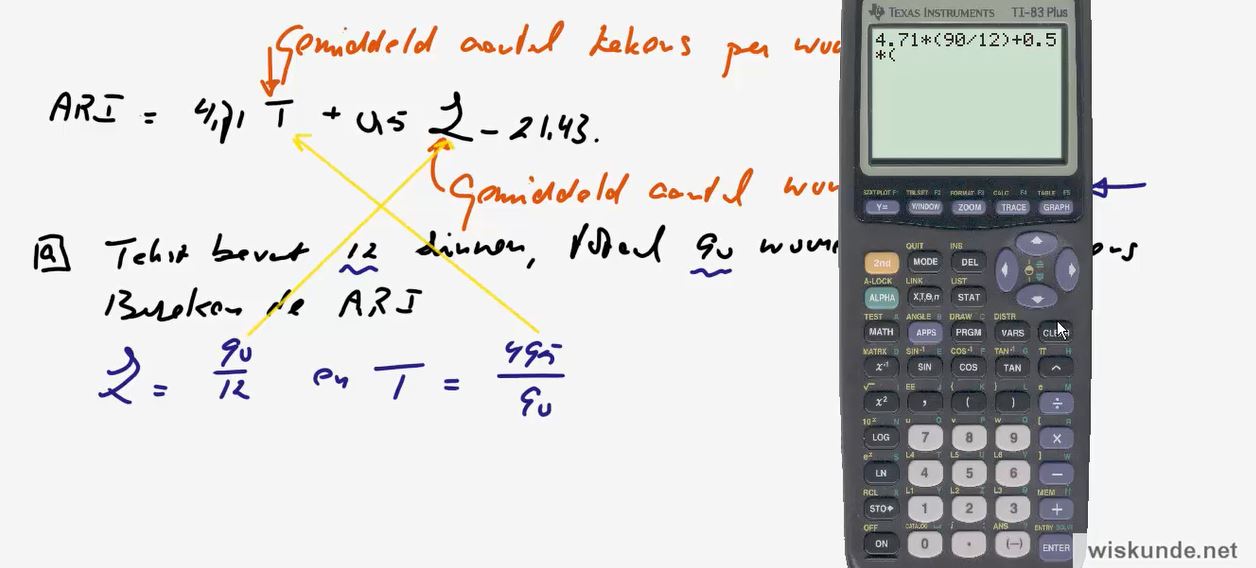 Gemiddeld aantal tekens per
ARI = 4,71 T + 0,5 Z - 21,43.
Gemiddeld aantal
a Tekst bevat 12 zinnen, totaal 90
Bereken de ARI
Z = 90/12 en T = 495/90
TEXAS INSTRUMENTS TI-83 Plus
4.71*(90/12)+0.5
*(
STAT PLOT F1 TBLSET F2 FORMAT F3 CALC F4 TABLE F5
Y= WINDOW ZOOM TRACE GRAPH
QUIT INS
2nd MODE DEL
A-LOCK LINK LIST
ALPHA X,T,θ,n STAT
TEST A ANGLE B DRAW C DISTR
MATH APPS PRGM VARS CLEAR
MATRX D SIN⁻¹ E COS⁻¹ F TAN⁻¹ G π H
x⁻¹ SIN COS TAN ^
√ I EE J { K } L e M
x² , ( ) ÷
10ˣ N u O v P w Q [ R
LOG 7 8 9 ×
eˣ S L4 T L5 U L6 V ] W
LN 4 5 6 −
RCL X L1 Y L2 Z L3 θ MEM "
STO➔ 1 2 3 +
OFF CATALOG i ANS ? ENTRY SOLVE
ON 0 . (−) ENTER
wiskunde.net